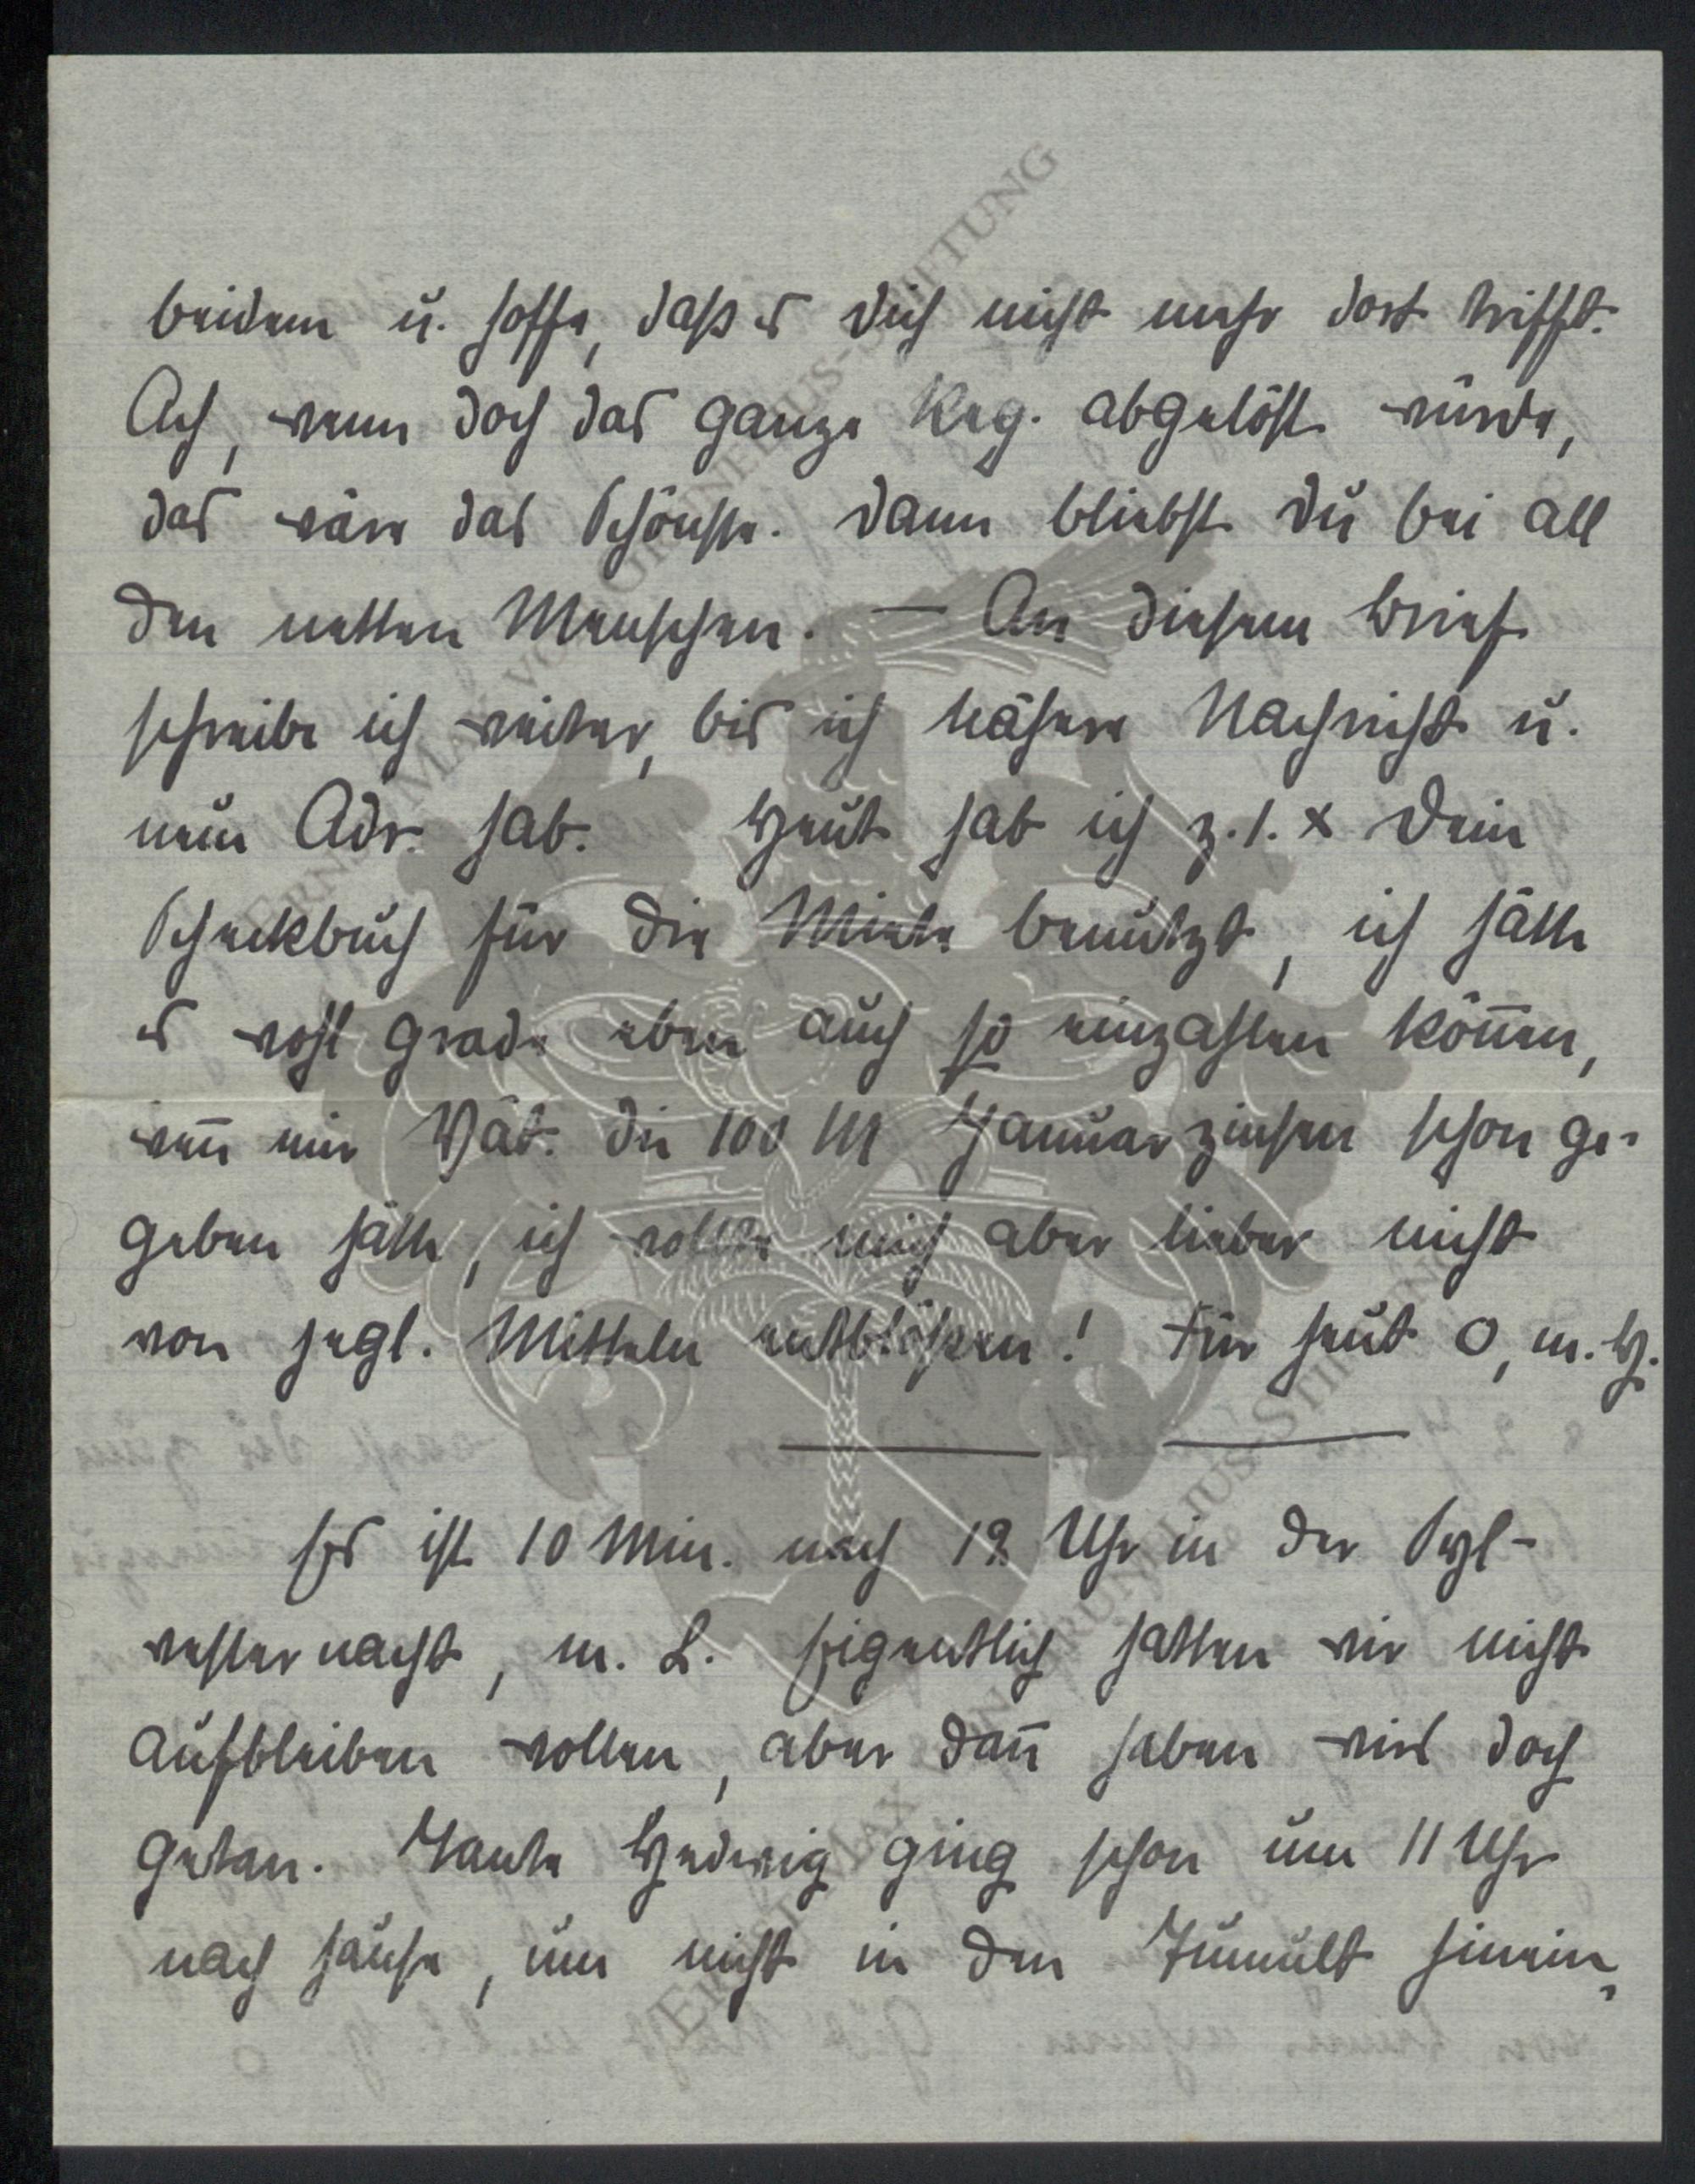 beidem u. hoffe, daß es Dich nicht mehr dort trifft.
Ach, wenn doch das ganze Reg. abgelöst würde,
das wäre das Schönste. Dann bliebst Du bei all
den netten Menschen. — An diesem Brief
schreibe ich weiter, bis ich nähere Nachricht u.
neue Adr. hab. Heut hab ich z. 1. x Dein
Scheckbuch für die Miete benutzt, ich hätte
es wohl grade eben auch so einzahlen kön̄en,
wen̄ mir Vat. die 100 M Januarzinsen schon ge-
geben hätte, ich wollte mich aber lieber nicht
von jegl. Mitteln entblößen! Für heut O, m. H.
Es ist 10 Min. nach 12 Uhr in der Syl-
vesternacht, m. L. Eigentlich hatten wir nicht
aufbleiben wollen, aber dan̄ haben wirs doch
getan. Tante Hedwig ging schon um 11 Uhr
nach Hause, um nicht in den Tumult hinein-
ERNST MAX VON GRUNELIUS-STIFTUNG
ERNST MAX VON GRUNELIUS-STIFTUNG